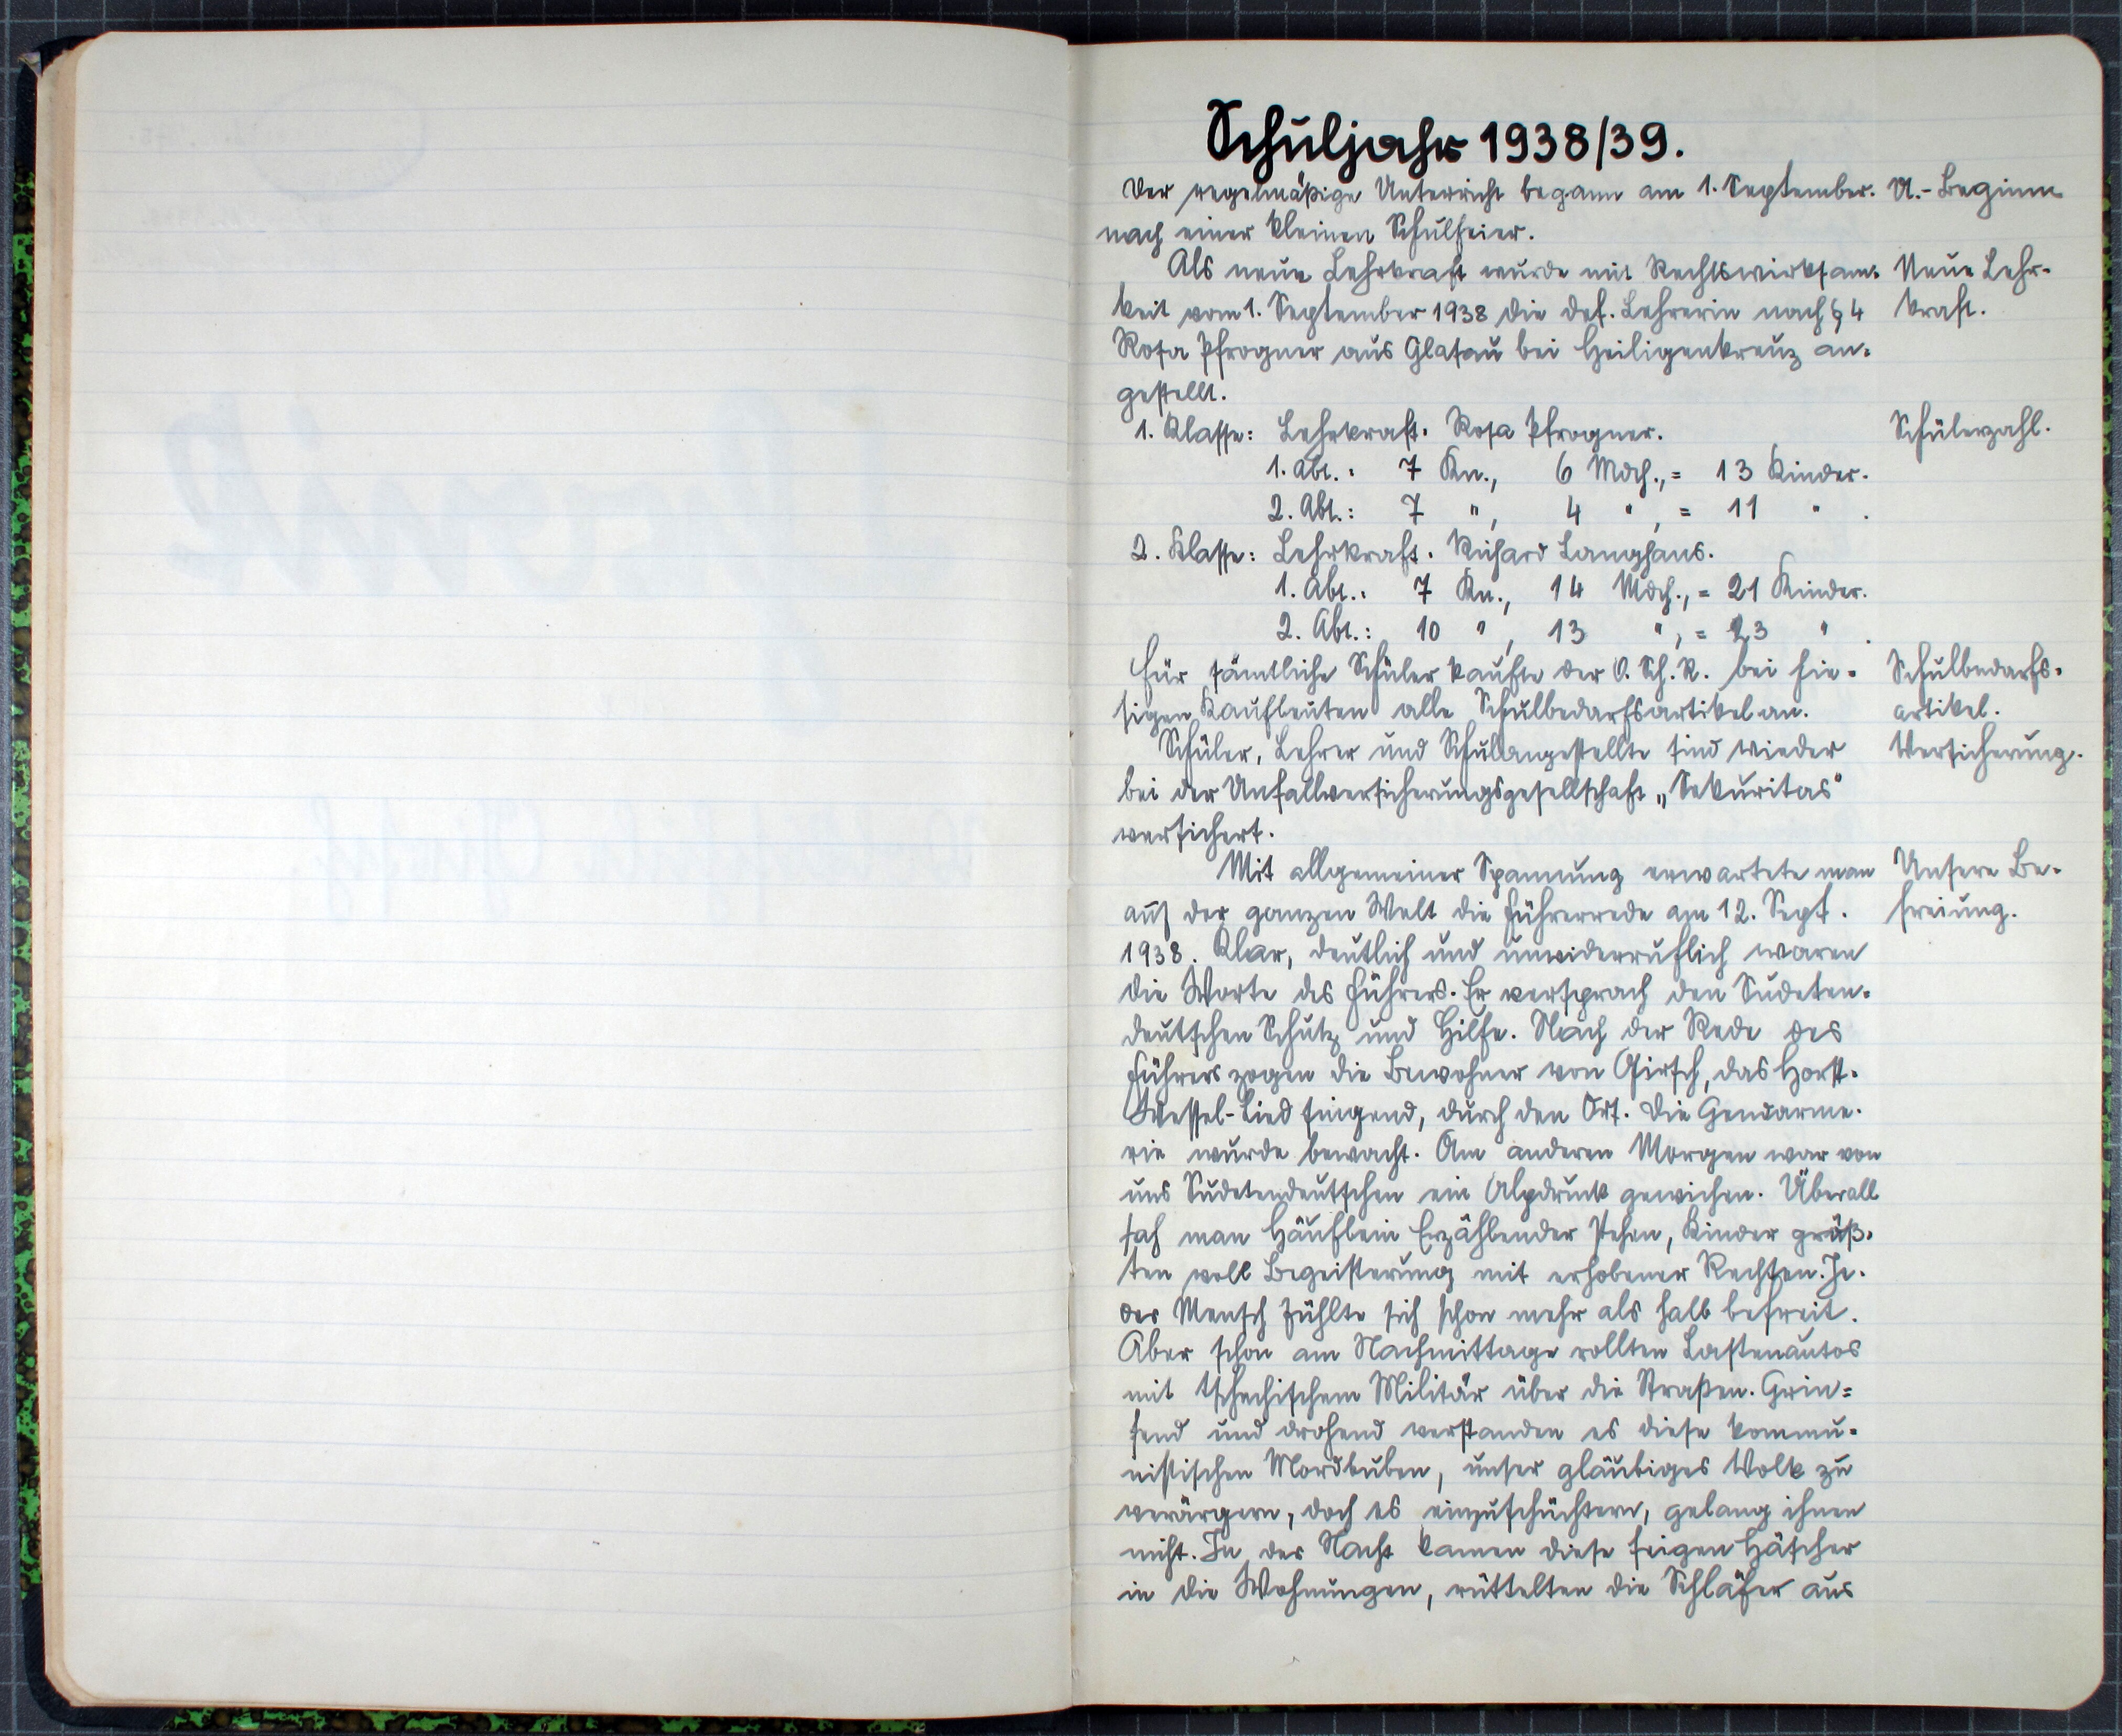 Schuljahr 1938/39.
Der regelmäßige Unterricht begann am 1. September. U.-Beginn
nach einer kleinen Schulfeier.
Als neue Lehrkraft wurde mit Rechtswirksam- Neue Lehr-
keit vom 1. September 1938 die def. Lehrerin nach § 4 kraft.
Rosa Pfrogner aus Glatau bei Heiligenkreuz an-
gestellt.
1. Klasse: Lehrkraft: Rosa Pfrogner. Schülerzahl.
1. Abt.: 7 Kn., 6 Mdch., = 13 Kinder.
2. Abt.: 7 ", 4 ", = 11 " .
2. Klasse: Lehrkraft: Richard Langhans.
1. Abt.: 7 Kn., 14 Mdch., = 21 Kinder.
2. Abt.: 10 ", 13 ", = 23 " .
Für sämtliche Schüler kaufte der O. Sch. R. bei hie- Schulbedarfs-
sigen Kaufleuten alle Schulbedarfsartikel an. artikel.
Schüler, Lehrer und Schulangestellte sind wieder Versicherung.
bei der Unfallversicherungsgesellschaft „Sekuritas"
versichert.
Mit allgemeiner Spannung erwartete man Unsere Be-
auf der ganzen Welt die Führerrede am 12. Sept. freiung.
1938. Klar, deutlich und unwiderruflich waren
die Worte des Führers. Er versprach den Sudeten-
deutschen Schutz und Hilfe. Nach der Rede des
Führers zogen die Bewohner von Girsch, das Horst-
Wessel-Lied singend, durch den Ort. Die Gendarme-
rie wurde bewacht. Am anderen Morgen war von
uns Sudetendeutschen ein Alpdruck gewichen. Überall
sah man Häuflein Erzählender stehen, Kinder grüß-
ten voll Begeisterung mit erhobener Rechten. Je-
der Mensch fühlte sich schon mehr als halb befreit.
Aber schon am Nachmittage rollten Lastenautos
mit tschechischem Militär über die Straßen. Grin-
send und drohend verstanden es diese kommu-
nistischen Mordbuben, unser gläubiges Volk zu
verärgern, doch es einzuschüchtern, gelang ihnen
nicht. In der Nacht kamen diese feigen Häscher
in die Wohnungen, rüttelten die Schläfer aus